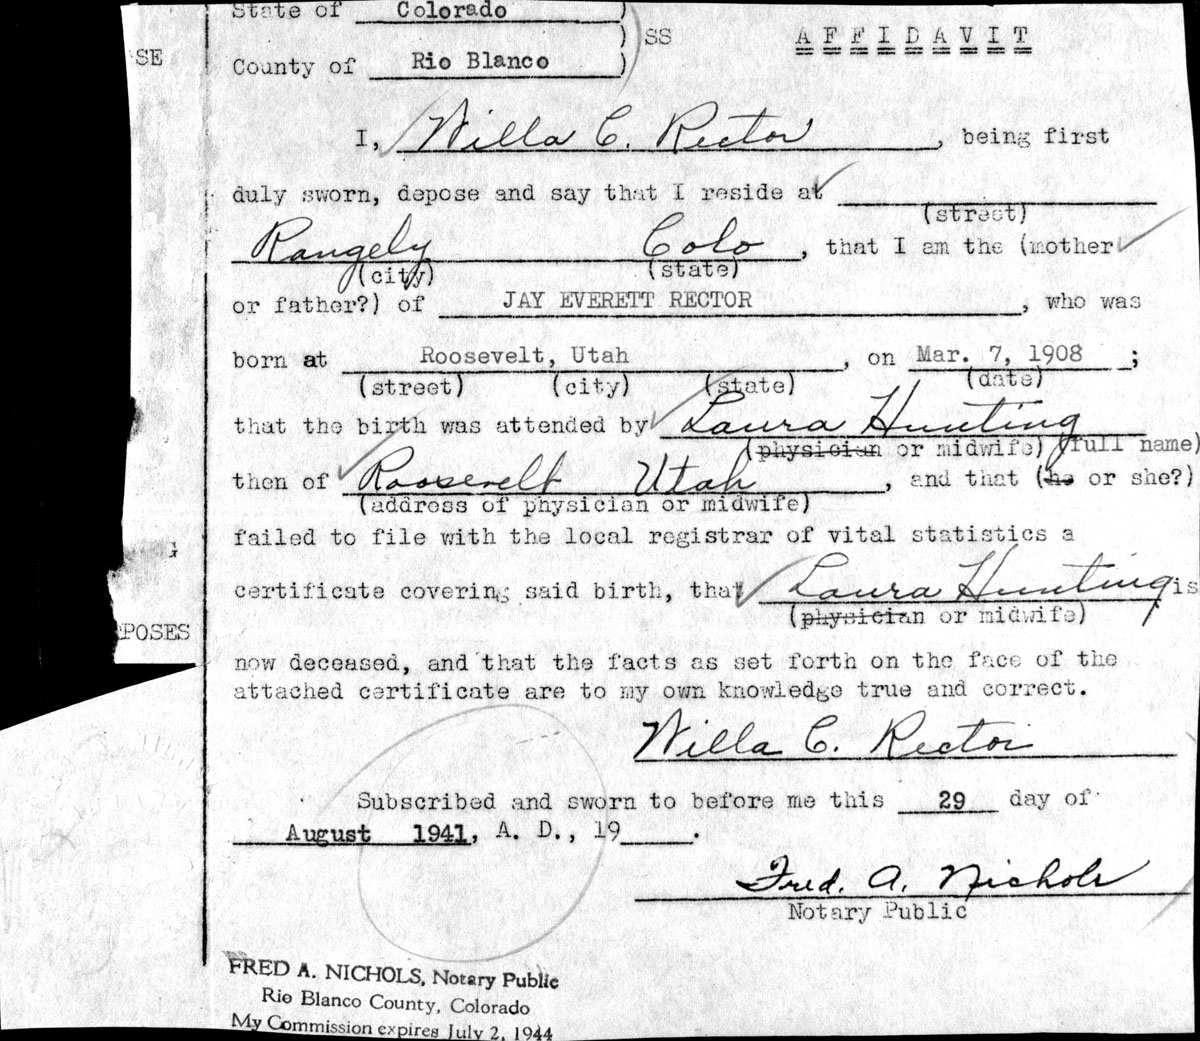 State of Colorado )
) SS AFFIDAVIT
SE
County of Rio Blanco )
I, Willa C. Rector, being first
duly sworn, depose and say that I reside at
(street)
Rangely Colo, that I am the (mother
(city) (state)
or father?) of JAY EVERETT RECTOR, who was
born at Roosevelt, Utah, on Mar. 7, 1908;
(street) (city) (state) (date)
that the birth was attended by Laura Hunting
(physician or midwife) (full name)
then of Roosevelt Utah, and that (he or she?)
(address of physician or midwife)
failed to file with the local registrar of vital statistics a
certificate covering said birth, that Laura Hunting is
(physician or midwife)
POSES
now deceased, and that the facts as set forth on the face of the
attached certificate are to my own knowledge true and correct.
Willa C. Rector
Subscribed and sworn to before me this 29 day of
August 1941, A. D., 19____.
Fred. A. Nichols
Notary Public
FRED A. NICHOLS, Notary Public
Rio Blanco County, Colorado
My Commission expires July 2, 1944